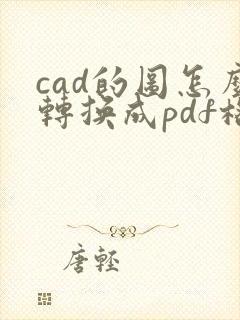 cad的圖怎麼
轉換成pdf格
唐輕